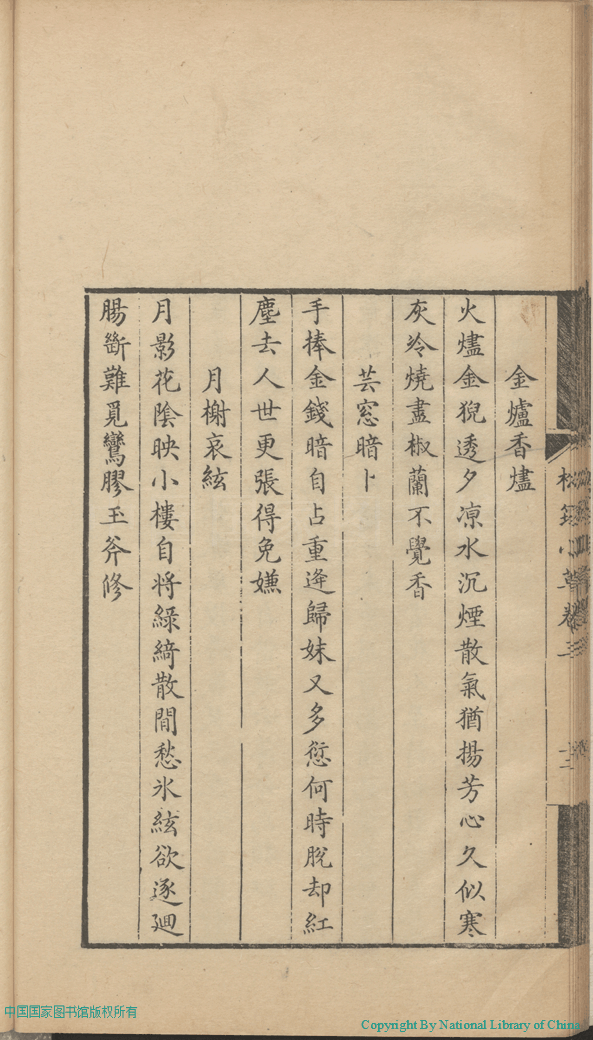 金爐香燼
火燼金猊透夕凉水沉煙散氣猶揚芳心久似寒
灰冷燒盡椒蘭不覺香
芸窓暗卜
手捧金錢暗自占重逄歸妹又多愆何時脫却紅
塵去人世更張得免嫌
月榭哀絃
月影花陰映小樓自將綠綺散閒愁氷絃欲逐廻
腸斷難覓鸞膠玉斧修
中国国家图书馆版权所有
Copyright By National Library of China